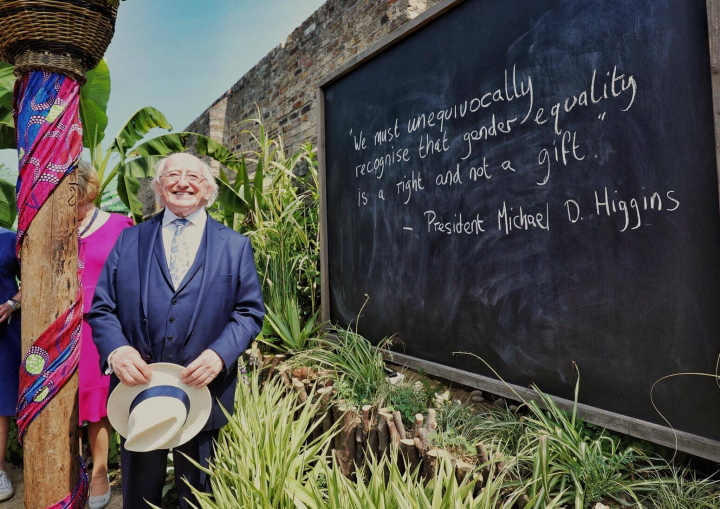 "We must unequivocally
recognise that gender equality
is a right and not a gift."
- President Michael D. Higgins